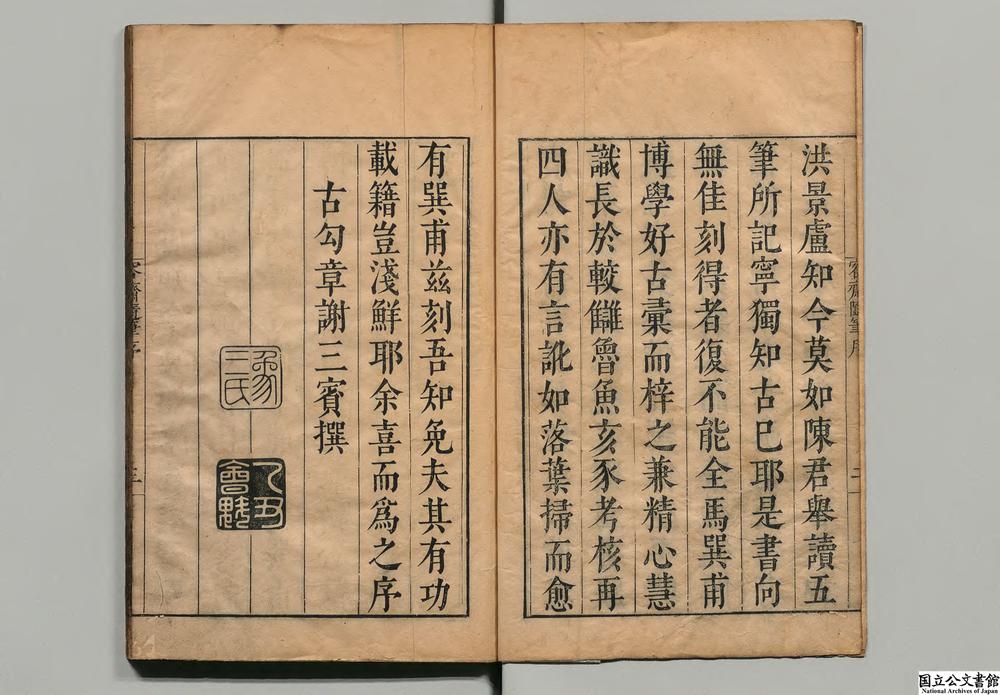 洪景盧知今莫如陳君舉讀五
筆所記寧獨知古已耶是書向
無佳刻得者復不能全馬巽甫
博學好古彙而梓之兼精心慧
識長於較讎魯魚亥豕考核再
四人亦有言訛如落葉掃而愈
有巽甫茲刻吾知免夫其有功
載籍豈淺鮮耶余喜而為之序
古勾章謝三賓撰
乙丑
會魁
国立公文書館
National Archives of Japan